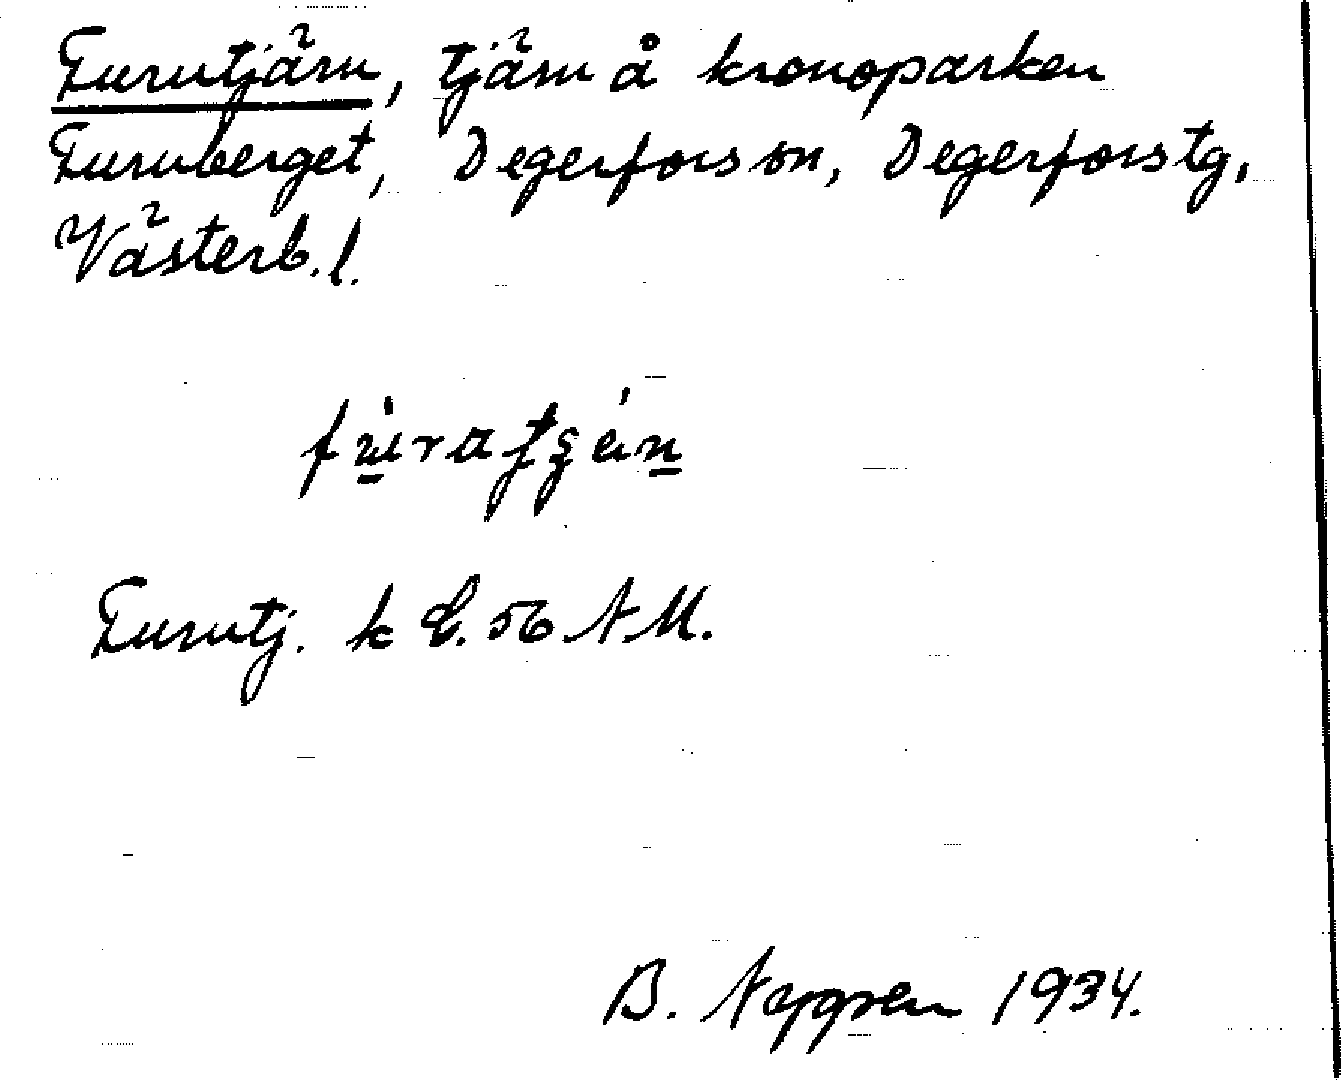 Furutjärn, tjärn å kronoparken
Furuberget, Degerfors sn, Degerfors tg,
Västerb. l.
Furutj. k E. 56 A M.
B. Nygren 1934.